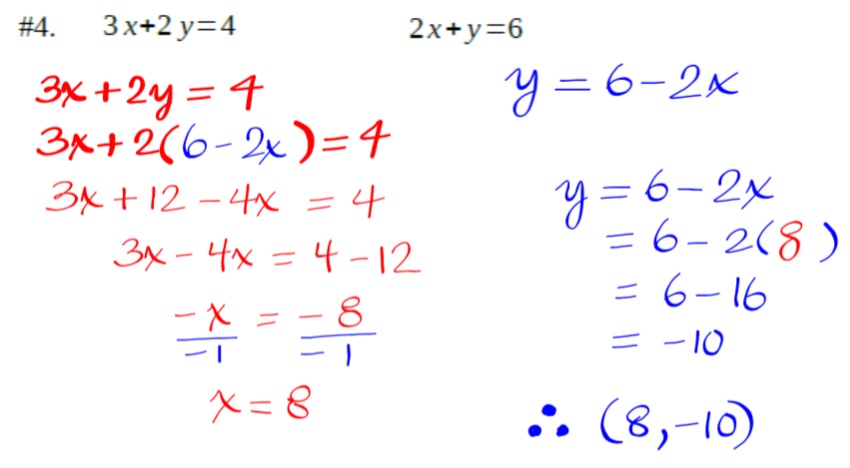 #4. 3x+2y=4 2x+y=6
3x+2y=4
3x+2(6-2x)=4
3x+12-4x=4
3x-4x=4-12
-x/-1 = -8/-1
x=8
y=6-2x
y=6-2x
=6-2(8)
=6-16
=-10
∴ (8,-10)